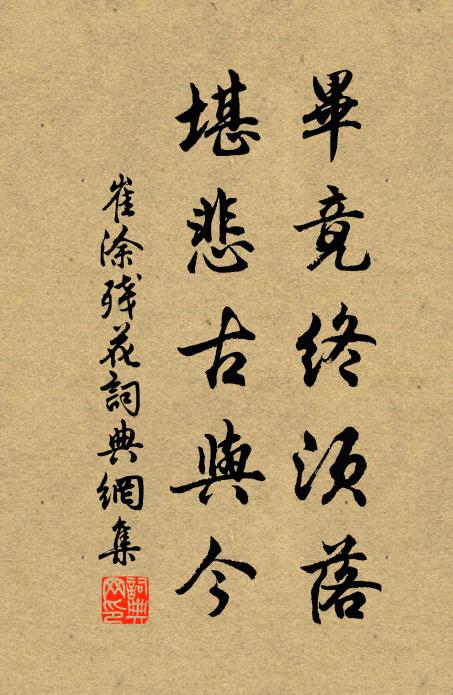 畢竟終須落
堪悲古與今
崔涂殘花詞典網集
詞典网印